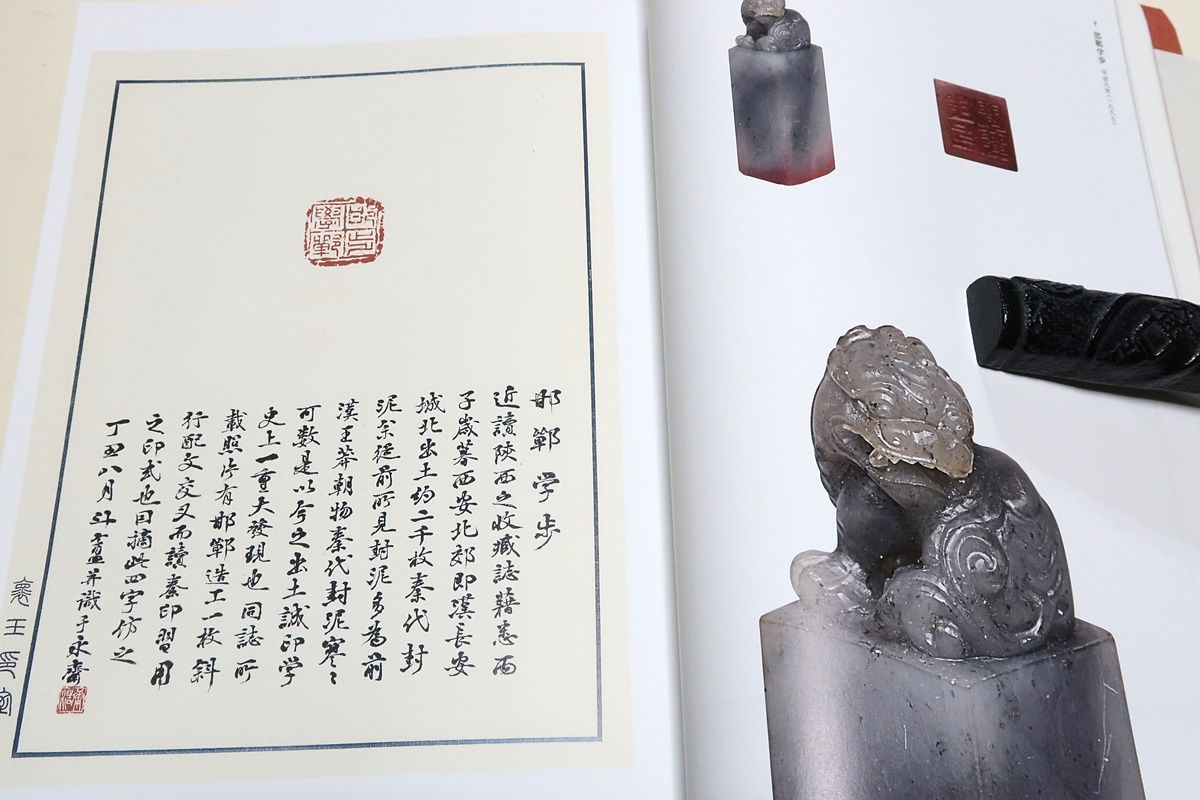 邯鄲学歩
近讀陝西之收臧誌藉悉丙
子歳暮西安北郊即漢長安
城北出土約二千枚秦代封
泥余從前所見封泥多為前
漢王莽朝物秦代封泥寥々
可数是以今之出土誠印学
史上一重大發現也同誌所
載照片有邯鄲造工一枚斜
行配文交叉而讀秦印習用
之印式也因摘此四字仿之
丁丑八月斗盦并識于永齋
邯鄲学歩 平成九年(一九九七)